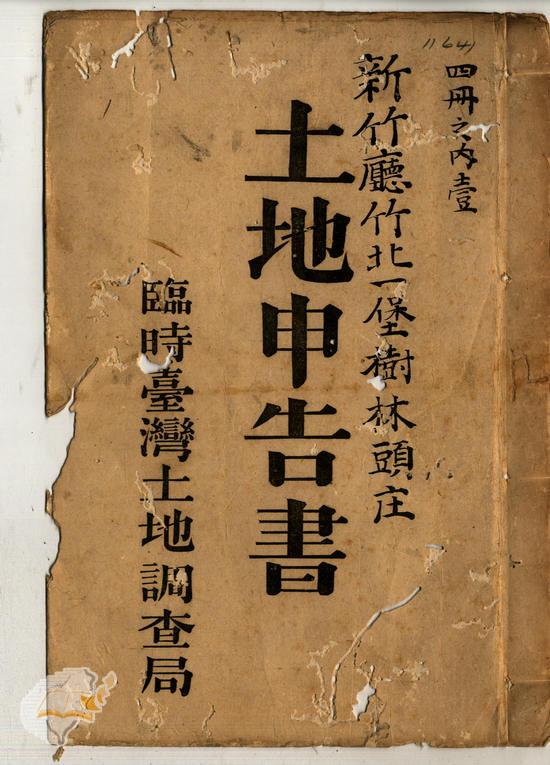 11641
四冊之内壹
新竹廳竹北一堡樹林頭庄
土地申告書
臨時臺灣土地調查局